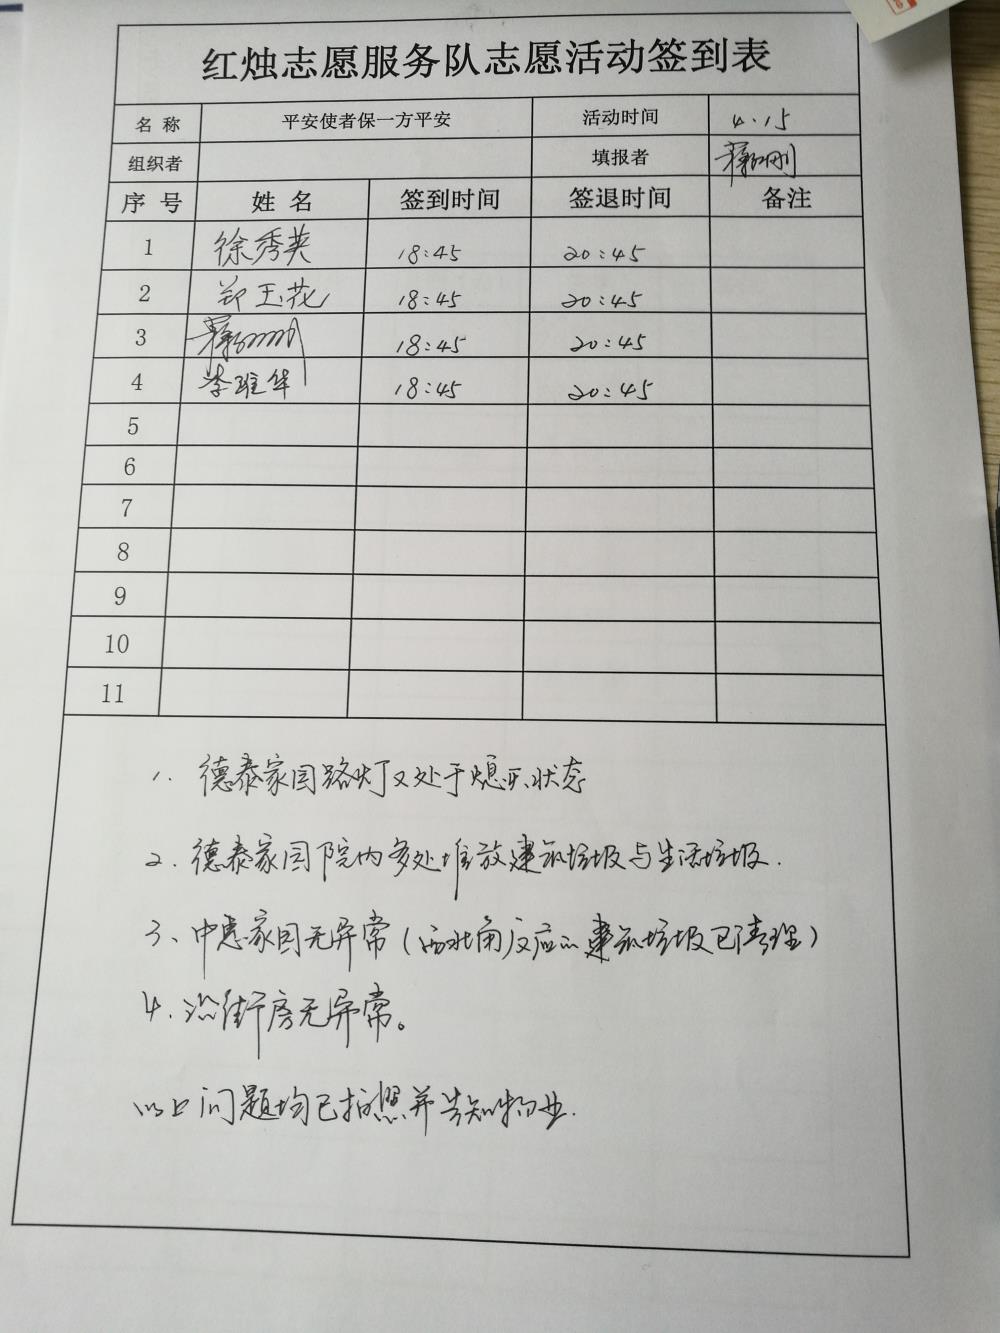 红烛志愿服务队志愿活动签到表
名 称 平安使者保一方平安 活动时间 4.15
组织者 填报者
序 号 姓 名 签到时间 签退时间 备注
1 徐秀英 18:45 20:45
2 郑玉花 18:45 20:45
3 18:45 20:45
4 李维华 18:45 20:45
5
6
7
8
9
10
11
1. 德泰家园路灯又处于熄灭状态
2. 德泰家园院内多处堆放建筑垃圾与生活垃圾.
3、中惠家园无异常(西北角反应的建筑垃圾已清理)
4. 沿街房无异常。
以上问题均已拍照并告知物业.